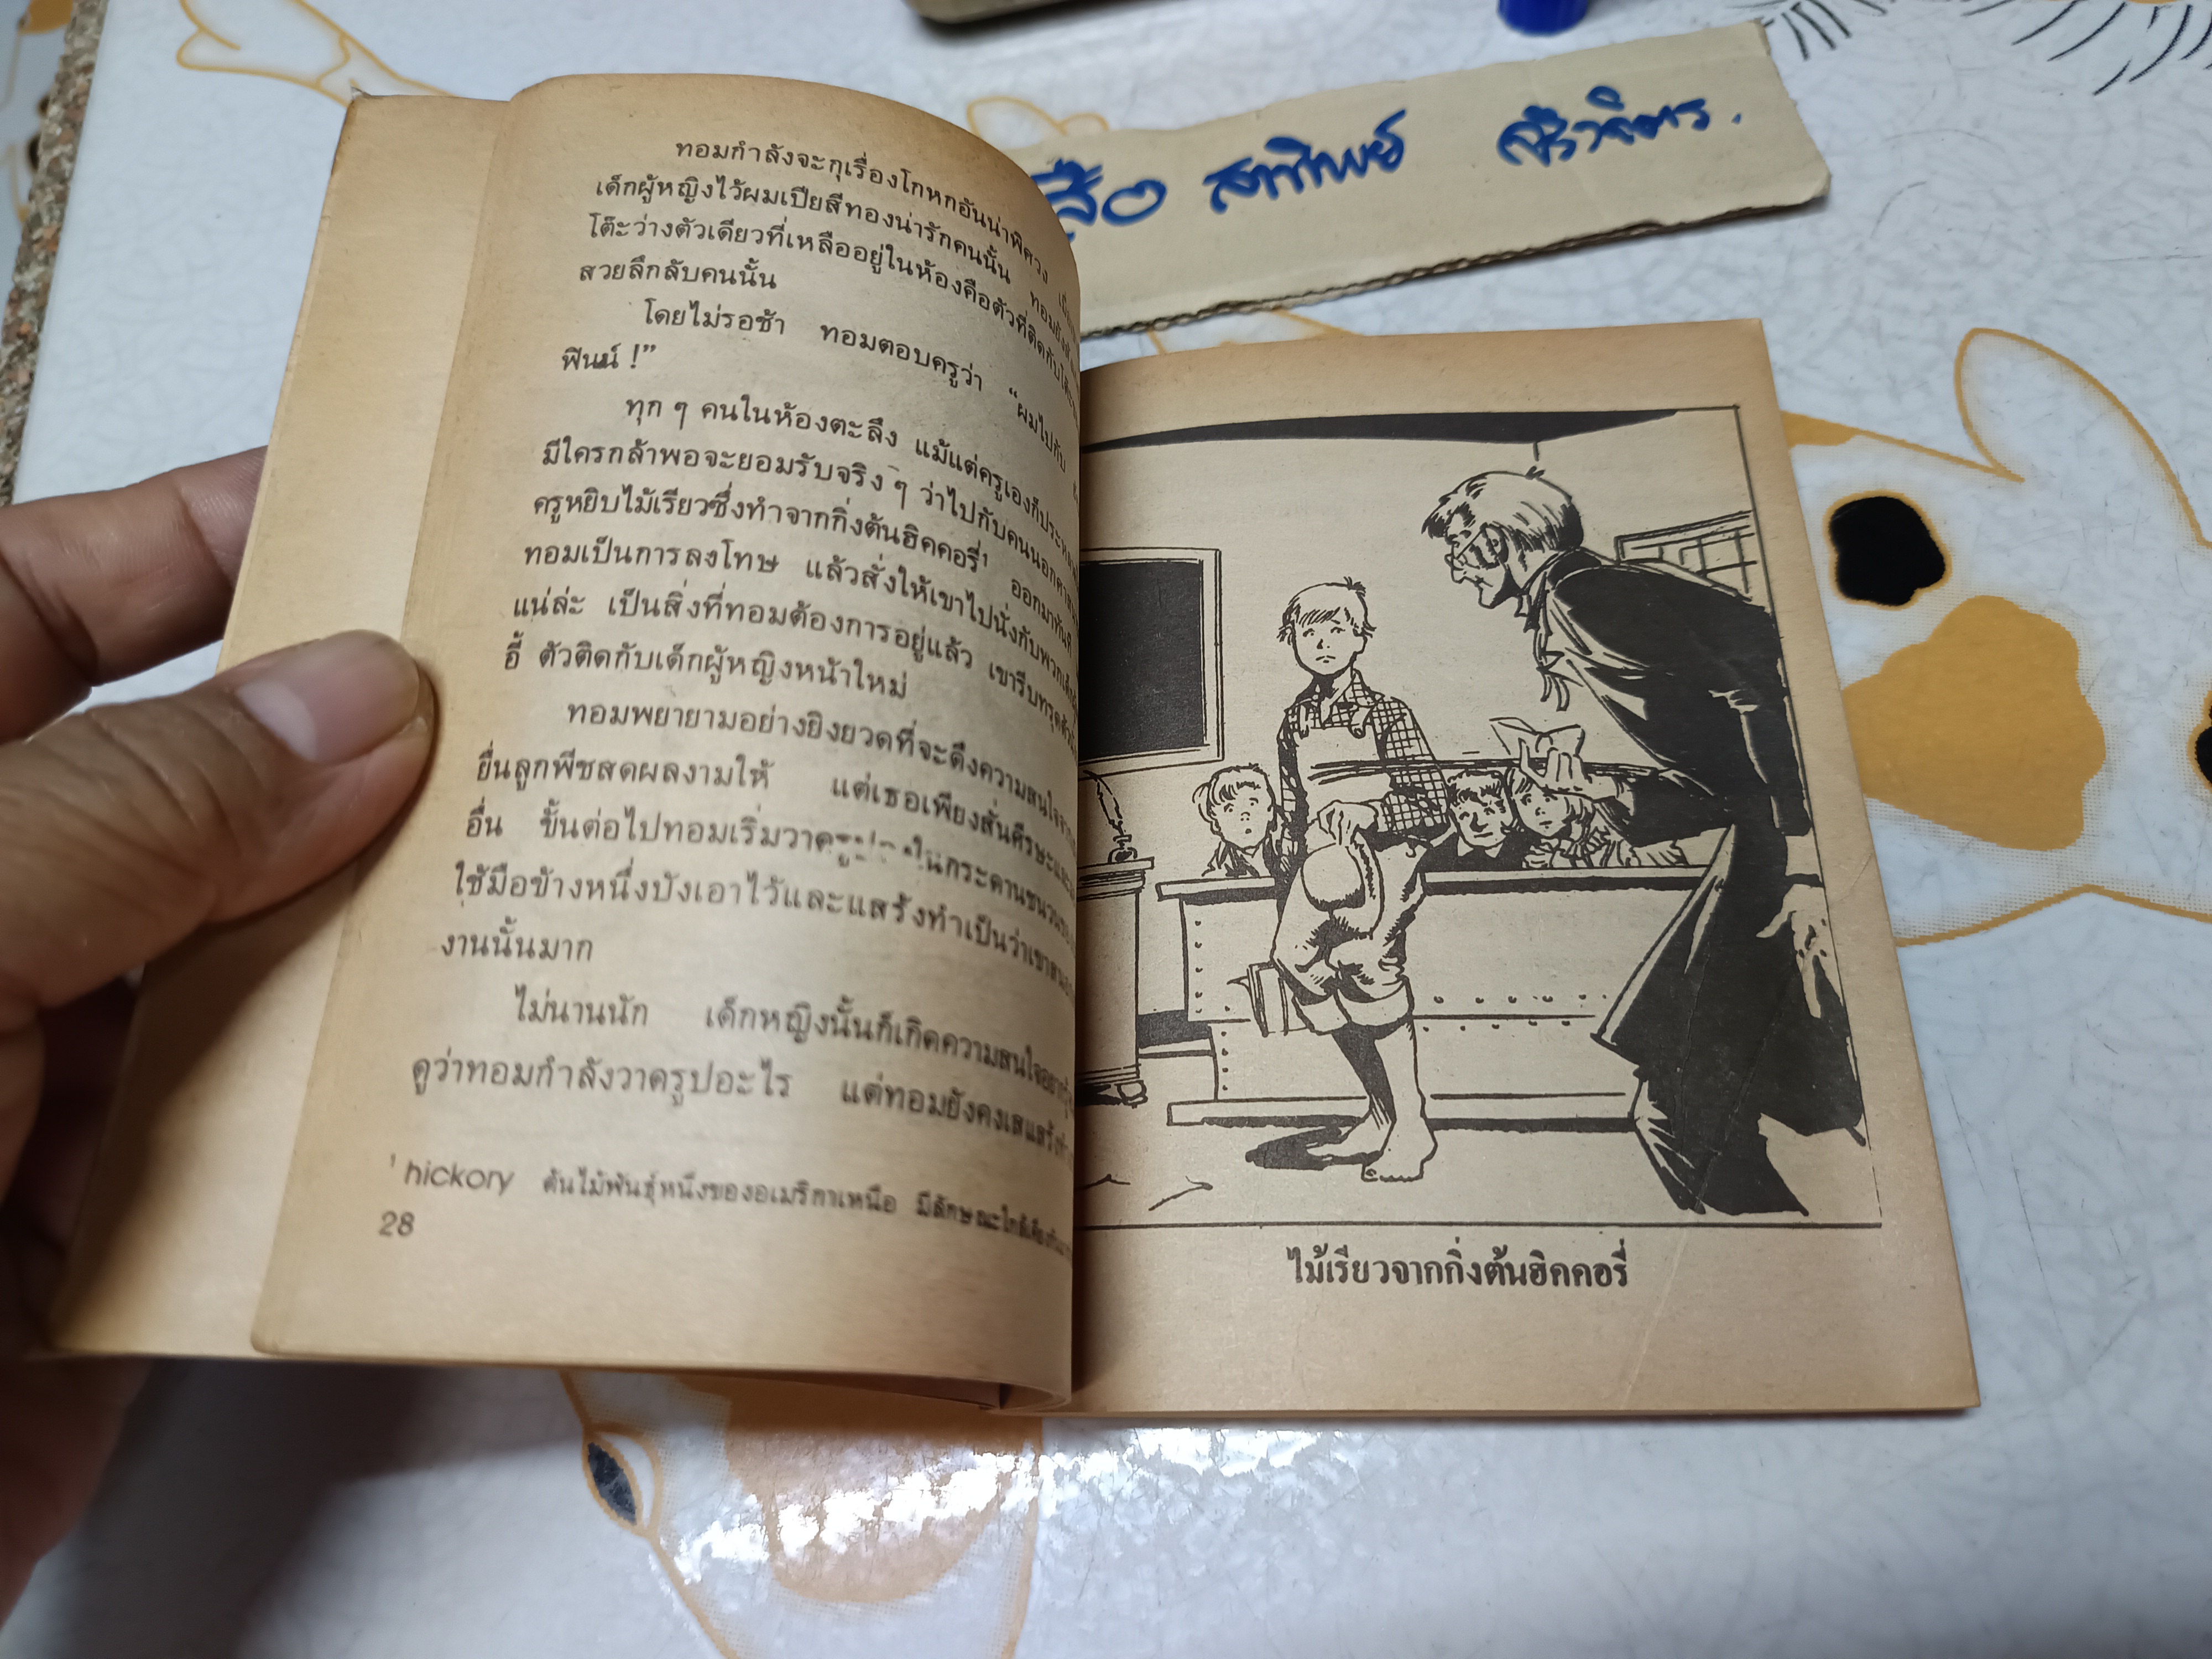 ทอมกำลังจะกุเรื่องโกหกอันน่าพิศวง
เด็กผู้หญิงไว้ผมเปียสีทองน่ารักคนนั้น ทอมยัง
โต๊ะว่างตัวเดียวที่เหลืออยู่ในห้องคือตัวที่ติดกับ
สวยลึกลับคนนั้น
โดยไม่รอช้า ทอมตอบครูว่า “ผมไปกับ
ฟินน์ !”
ทุก ๆ คนในห้องตะลึง แม้แต่ครูเองก็ประหลาด
มีใครกล้าพอจะยอมรับจริง ๆ ว่าไปกับคนนอกคอก
ครูหยิบไม้เรียวซึ่งทำจากกิ่งต้นฮิคคอรี่¹ ออกมาทันที
ทอมเป็นการลงโทษ แล้วสั่งให้เขาไปนั่งกับพวกเด็ก
แน่ล่ะ เป็นสิ่งที่ทอมต้องการอยู่แล้ว เขารีบทรุดตัว
อี้ ตัวติดกับเด็กผู้หญิงหน้าใหม่
ทอมพยายามอย่างยิ่งยวดที่จะดึงความสนใจ
ยื่นลูกพีชสดผลงามให้ แต่เธอเพียงสั่นศีรษะและ
อื่น ขั้นต่อไปทอมเริ่มวาดรูป ในกระดานชนวน
ใช้มือข้างหนึ่งบังเอาไว้และแสร้งทำเป็นว่าเขา
งานนั้นมาก
ไม่นานนัก เด็กหญิงนั้นก็เกิดความสนใจอยาก
ดูว่าทอมกำลังวาดรูปอะไร แต่ทอมยังคงเสแสร้ง
¹ hickory ต้นไม้พันธุ์หนึ่งของอเมริกาเหนือ มีลักษณะใกล้เคียงกับ
28
สาทิพย์
ไม้เรียวจากกิ่งต้นฮิคคอรี่